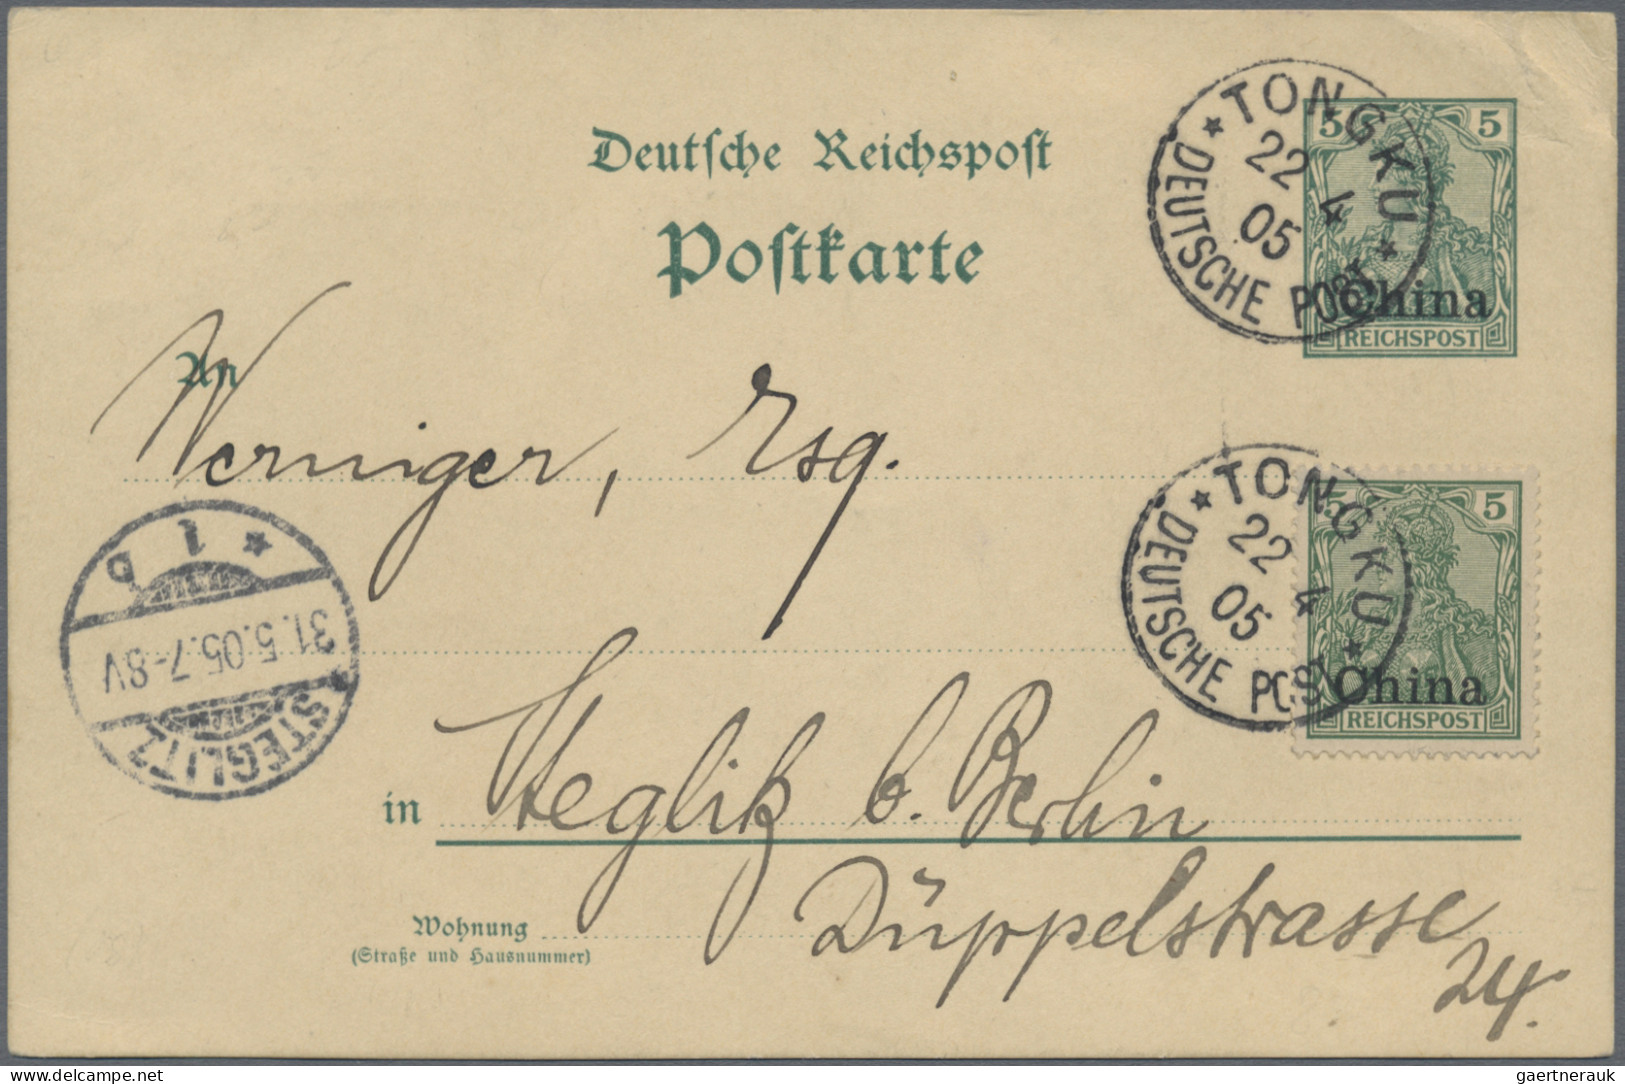 Deutsche Reichspost
Postkarte
TONGKU
22 4
05
DEUTSCHE POST
5 5
China
REICHSPOST
An
Werniger, Esq.
TONGKU
22 4
05
DEUTSCHE POST
5 5
China
REICHSPOST
STEGLITZ
31.5.05.7-8V
1 b
in Steglitz b. Berlin
Wohnung Düppelstrasse
(Straße und Hausnummer)
24.
delcampe.net
gaertnerauk